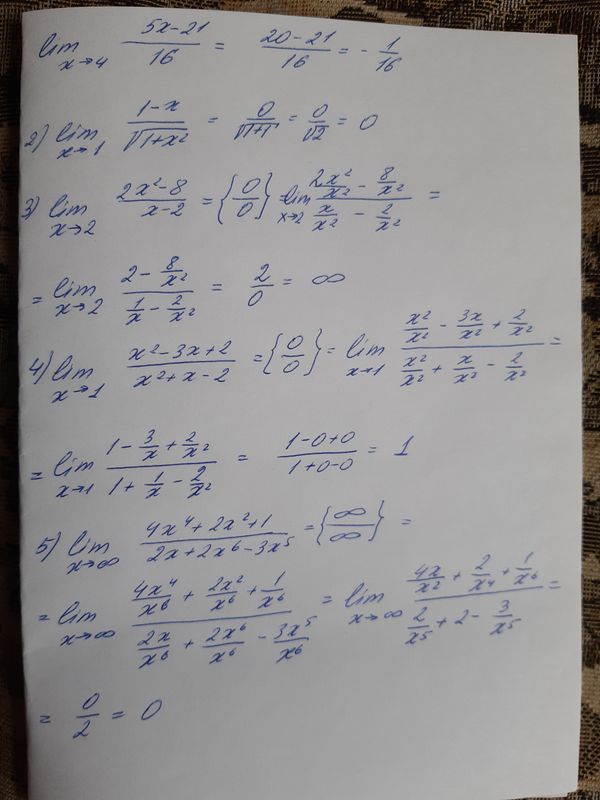 lim x→4 (5x-21)/16 = (20-21)/16 = -1/16
2) lim x→1 (1-x)/√(1+x²) = 0/√(1+1) = 0/√2 = 0
3) lim x→2 (2x²-8)/(x-2) = {0/0} = lim x→2 (2x²/x² - 8/x²)/(x/x² - 2/x²) =
= lim x→2 (2 - 8/x²)/(1/x - 2/x²) = 2/0 = ∞
4) lim x→1 (x²-3x+2)/(x²+x-2) = {0/0} = lim x→1 (x²/x² - 3x/x² + 2/x²)/(x²/x² + x/x² - 2/x²) =
= lim x→1 (1 - 3/x + 2/x²)/(1 + 1/x - 2/x²) = (1-0+0)/(1+0-0) = 1
5) lim x→∞ (4x⁴+2x²+1)/(2x+2x⁶-3x⁵) = {∞/∞} =
= lim x→∞ (4x⁴/x⁶ + 2x²/x⁶ + 1/x⁶)/(2x/x⁶ + 2x⁶/x⁶ - 3x⁵/x⁶) = lim x→∞ (4x/x² + 2/x⁴ + 1/x⁶)/(2/x⁵ + 2 - 3/x⁵) =
= 0/2 = 0